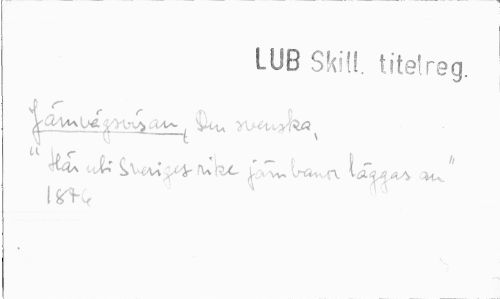 LUB Skill. titelreg.
Järnvägsvisan, Den svenska,
"Här uti Sveriges rike järnbanor läggas an"
1876